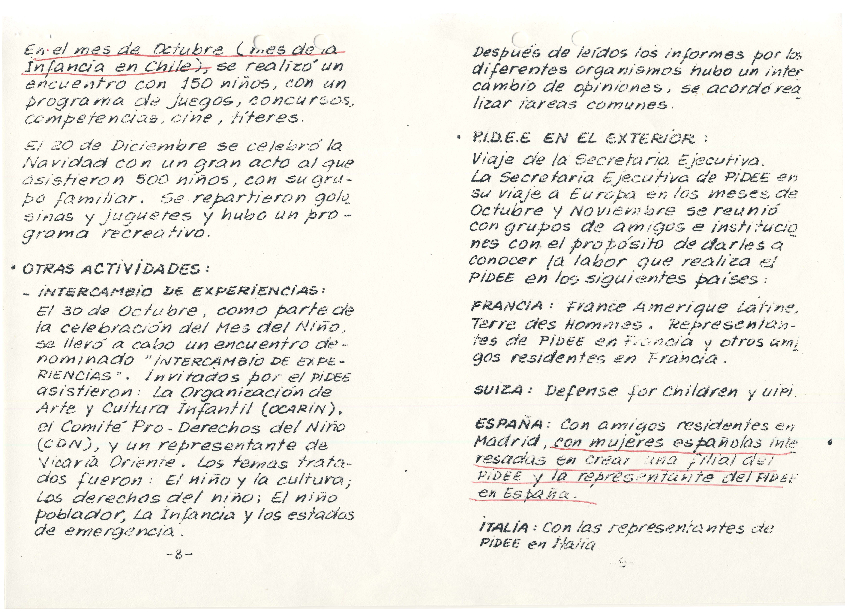 En el mes de Octubre (mes de la
Infancia en Chile), se realizó un
encuentro con 150 niños, con un
programa de juegos, concursos,
competencias, cine, títeres.
El 20 de Diciembre se celebró la
Navidad con un gran acto al que
asistieron 500 niños, con su gru-
po familiar. Se repartieron golo
sinas y juguetes y hubo un pro-
grama recreativo.
• OTRAS ACTIVIDADES:
- INTERCAMBIO DE EXPERIENCIAS:
El 30 de Octubre, como parte de
la celebración del Mes del Niño,
se llevó a cabo un encuentro de-
nominado "INTERCAMBIO DE EXPE-
RIENCIAS". Invitados por el PIDEE
asistieron: La Organización de
Arte y Cultura Infantil (OCARIN),
el Comité Pro-Derechos del Niño
(CDN), y un representante de
Vicaría Oriente. Los temas trata-
dos fueron: El niño y la cultura;
Los derechos del niño; El niño
poblador, La Infancia y los estados
de emergencia.
-8-
Después de leídos los informes por los
diferentes organismos hubo un inter
cambio de opiniones, se acordó rea
lizar tareas comunes.
• P.I.D.E.E EN EL EXTERIOR:
Viaje de la Secretaria Ejecutiva.
La Secretaria Ejecutiva de PIDEE en
su viaje a Europa en los meses de
Octubre y Noviembre se reunió
con grupos de amigos e institucio
nes con el propósito de darles a
conocer la labor que realiza el
PIDEE en los siguientes países:
FRANCIA: France Amerique Latine,
Terre des Hommes. Representan-
tes de PIDEE en Francia y otros ami
gos residentes en Francia.
SUIZA: Defense for Children y UIPI.
ESPAÑA: Con amigos residentes en
Madrid, con mujeres españolas inte
resadas en crear una filial del
PIDEE y la representante del PIDEE
en España.
ITALIA: Con las representantes de
PIDEE en Italia